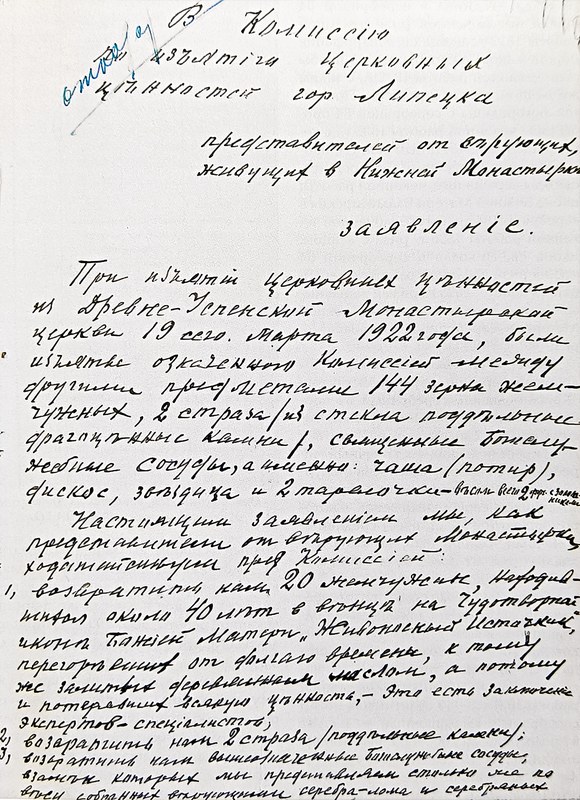 В Комиссію
По изъятію церковных
цѣнностей гор. Липецка
представителей от вѣрующих,
живущих в Нижней Монастырке
заявленіе.
При изъятіи церковных цѣнностей
из Древне-Успенской Монастырской
церкви 19 сего Марта 1922 года, были
изъяты означенною Комиссіей между
другими предметами 144 зерна жем-
чужных, 2 страза /из стекла поддѣльные
драгоцѣнные камни/, священные Богослу-
жебные сосуды, а именно: чаша (потир),
дискос, звѣздица и 2 тарелочки
Настоящим заявленіем мы, как
представители от вѣрующих Монастырки,
ходатайствуем пред Комиссіей:
1, возвратить нам 20 жемчужин, находив-
шихся около 40 лѣт в вѣнцѣ на Чудотворной
иконѣ Божіей Матери „Живоносный Источник",
перегорѣвших от долгаго времени, к тому
же залитых деревянным маслом, а потому
и потерявших всякую цѣнность, - это есть заключеніе
экспертов-спеціалистов;
2, возвратить нам 2 страза /поддѣльные камни/;
3, возвратить нам вышеозначенные Богослужебные сосуды,
взамѣн которых мы представляем столько же по
вѣсу собранных вѣрующими серебра-лома и серебряных